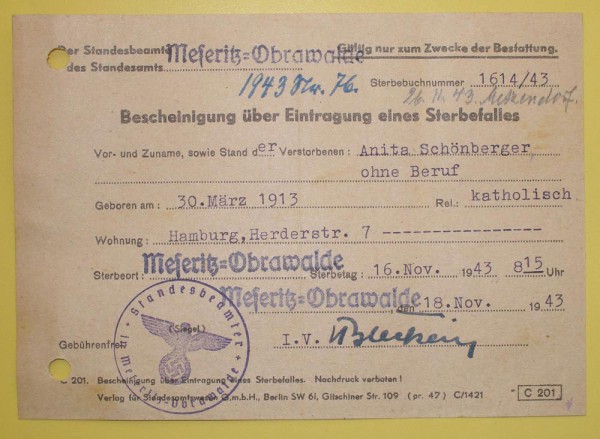 Der Standesbeamte Meseritz=Obrawalde Gültig nur zum Zwecke der Bestattung.
des Standesamts
1943 Nr. 76. Sterbebuchnummer 1614/43
26. 11. 43.
Bescheinigung über Eintragung eines Sterbefalles
Vor- und Zuname, sowie Stand der Verstorbenen: Anita Schönberger
ohne Beruf
Geboren am: 30.März 1913 Rel.: katholisch
Wohnung: Hamburg,Herderstr. 7 ----------------
Sterbeort: Meseritz=Obrawalde Sterbetag: 16.Nov. 1943 815 Uhr
Meseritz=Obrawalde, den 18.Nov. 1943
Standesbeamter
(Siegel)
Gebührenfrei! I.V.
in Meseritz-Obrawalde
C 201. Bescheinigung über Eintragung eines Sterbefalles. Nachdruck verboten!
Verlag für Standesamtswesen G.m.b.H., Berlin SW 61, Gitschiner Str. 109 (pr. 47) C/1421 C 201